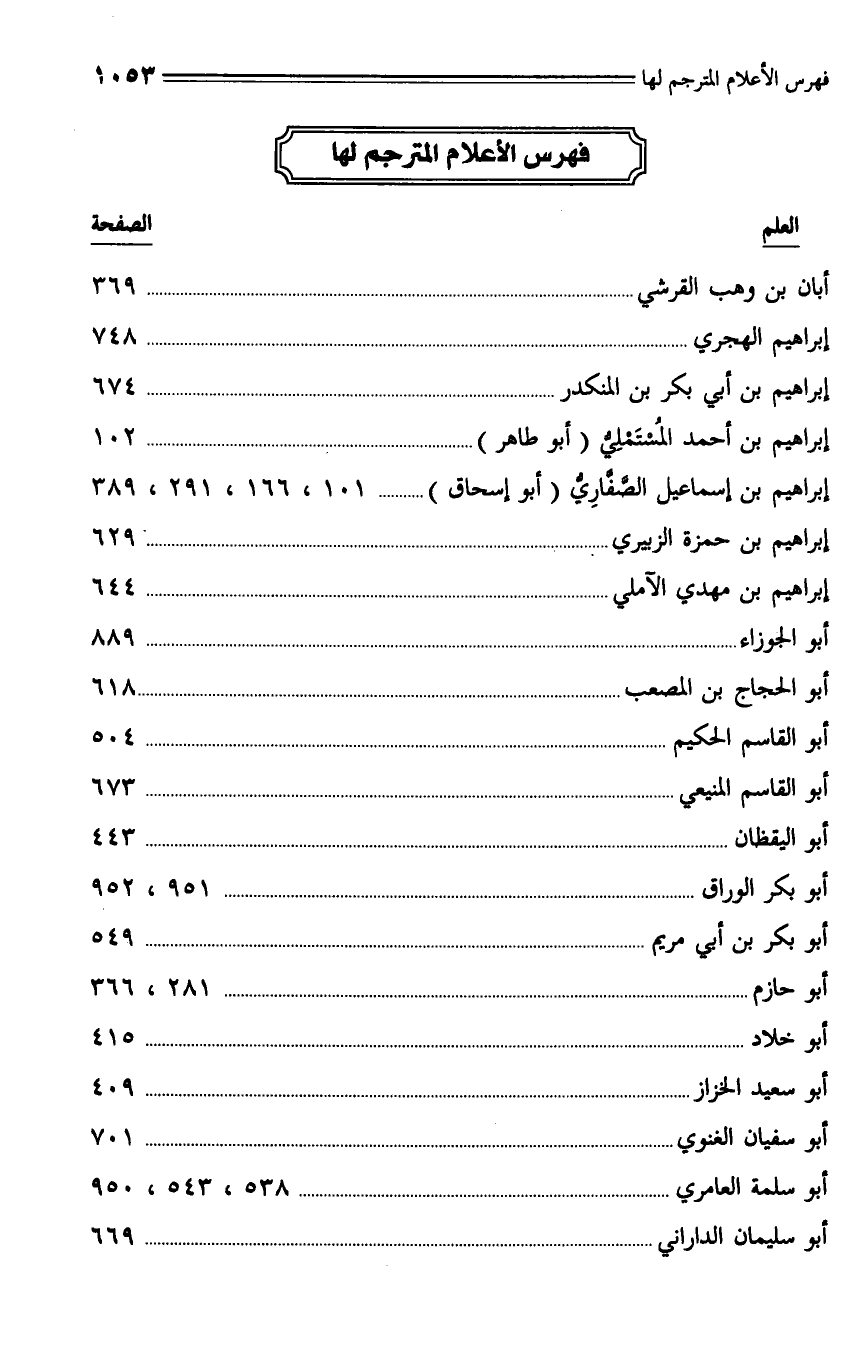 فهرس الأعلام المترجم لها ١٠٥٣
فهرس الأعلام المترجم لها
العلم الصفحة
أبان بن وهب القرشي ٣٦٩
إبراهيم الهجري ٧٤٨
إبراهيم بن أبي بكر بن المنكدر ٦٧٤
إبراهيم بن أحمد المُسْتَمْلِيُّ ( أبو طاهر ) ١٠٢
إبراهيم بن إسماعيل الصَّفَّارِيُّ ( أبو إسحاق ) ١٠١ ، ١٦٦ ، ٢٩١ ، ٣٨٩
إبراهيم بن حمزة الزبيري ٦٢٩
إبراهيم بن مهدي الآملي ٦٤٤
أبو الجوزاء ٨٨٩
أبو الحجاج بن المصعب ٦١٨
أبو القاسم الحكيم ٥٠٤
أبو القاسم المنيعي ٦٧٣
أبو اليقظان ٤٤٣
أبو بكر الوراق ٩٥١ ، ٩٥٢
أبو بكر بن أبي مريم ٥٤٩
أبو حازم ٢٨١ ، ٣٦٦
أبو خلاد ٤١٥
أبو سعيد الخزاز ٤٠٩
أبو سفيان الغنوي ٧٠١
أبو سلمة العامري ٥٣٨ ، ٥٤٣ ، ٩٥٠
أبو سليمان الداراني ٦٦٩